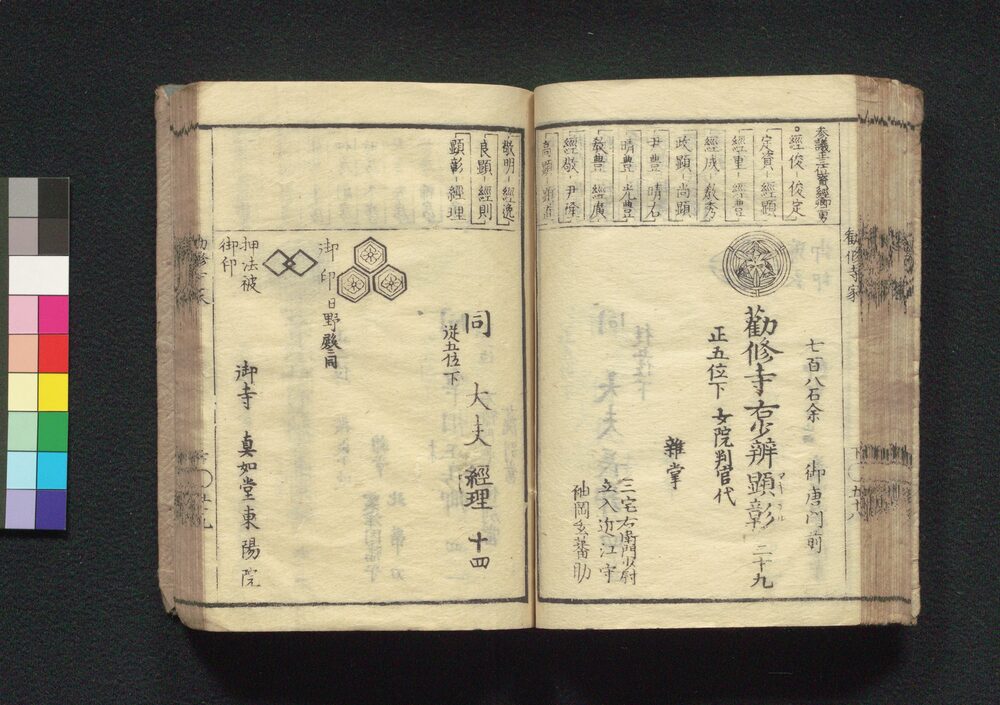 勧修寺家
経俊-俊定
定資-経顕
経重-経豊
経成-教秀
政顕-尚顕
尹豊-晴右
晴豊-光豊
教豊-経広
経敬-尹隆
高顕-顕道
七百八石余 御唐門前
勧修寺右少辨顕彰 二十九
正五位下 女院判官代
雑掌
三宅右衛門少尉
立入近江守
袖岡玄蕃助
下 五十八
敬明-経逸
良顕-経則
顕彰-経理
同 大夫 経理 十四
従五位下
御印日野殿ニ同
押法被
御印
御寺 真如堂東陽院